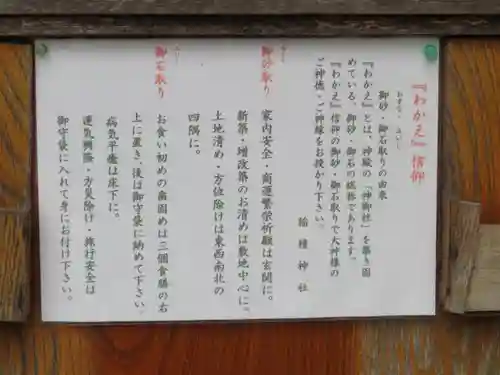 『わかえ』信仰
おすな・みいし
御砂・御石取りの由来
『わかえ』とは、神殿の「神御社」を築き固
めている、御砂・御石の総称であります。
『わかえ』信仰の御砂・御石取りで大神様の
ご神徳・ご神縁をお授かり下さい。
稲積神社
御砂取り
家内安全・商運繁栄祈願は玄関に。
新築・増改築のお清めは敷地中心に。
土地清め・方位除けは東西南北の
四隅に。
御石取り
お食い初めの歯固めは三個食膳の右
上に置き、後は御守袋に納めて下さい。
病気平癒は床下に。
運気興隆・方災除け・旅行安全は
御守袋に入れて身にお付け下さい。